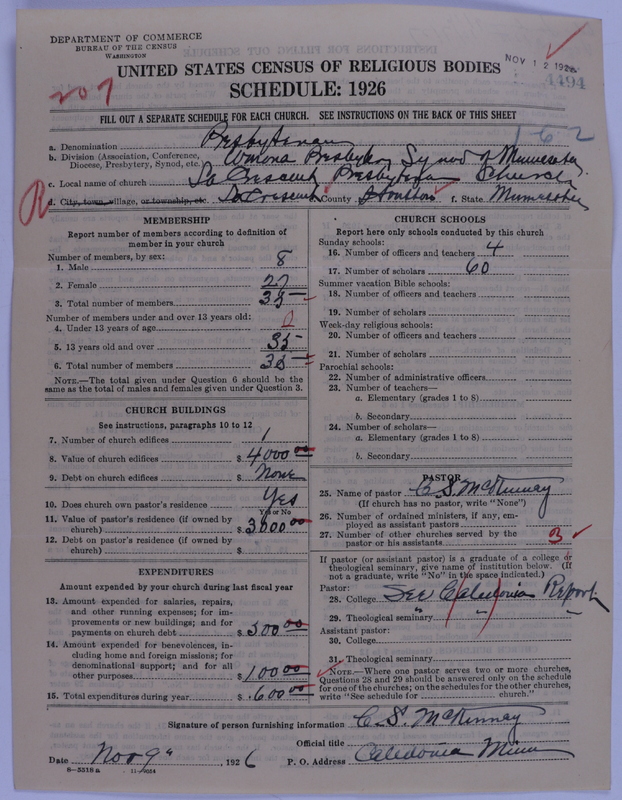 DEPARTMENT OF COMMERCE
BUREAU OF THE CENSUS
WASHINGTON
NOV 12 1926
4494
UNITED STATES CENSUS OF RELIGIOUS BODIES
SCHEDULE: 1926
207
FILL OUT A SEPARATE SCHEDULE FOR EACH CHURCH. SEE INSTRUCTIONS ON THE BACK OF THIS SHEET
162
a. Denomination Presbyterian
b. Division (Association, Conference, Diocese, Presbytery, Synod, etc.) Winona Presbytery Synod of Minnesota
c. Local name of church La Crescent Presbyterian Church
R
d. City, town, village, or township, etc. La Crescent County Houston f. State Minnesota
MEMBERSHIP
Report number of members according to definition of
member in your church
Number of members, by sex:
1. Male 8
2. Female 27
3. Total number of members 35
Number of members under and over 13 years old:
4. Under 13 years of age 0
5. 13 years old and over 35
6. Total number of members 35
NOTE.—The total given under Question 6 should be
same as the total of males and females given under Question 3.
CHURCH BUILDINGS
See instructions, paragraphs 10 to 12
7. Number of church edifices 1
8. Value of church edifices $ 4000 00
9. Debt on church edifices $ None
10. Does church own pastor's residence Yes
Yes or No
11. Value of pastor's residence (if owned by
church) $ 3000 00
12. Debt on pastor's residence (if owned by
church) $
EXPENDITURES
Amount expended by your church during last fiscal year
13. Amount expended for salaries, repairs,
and other running expenses; for im-
provements or new buildings; and for
payments on church debt $ 500 00
14. Amount expended for benevolences, in-
cluding home and foreign missions; for
denominational support; and for all
other purposes $ 100 00
15. Total expenditures during year $ 600 00
CHURCH SCHOOLS
Report here only schools conducted by this church
Sunday schools:
16. Number of officers and teachers 4
17. Number of scholars 60
Summer vacation Bible schools:
18. Number of officers and teachers
19. Number of scholars
Week-day religious schools:
20. Number of officers and teachers
21. Number of scholars
Parochial schools:
22. Number of administrative officers
23. Number of teachers—
a. Elementary (grades 1 to 8)
b. Secondary
24. Number of scholars—
a. Elementary (grades 1 to 8)
b. Secondary
PASTOR
25. Name of pastor C. S. McKinney
(If church has no pastor, write "None")
26. Number of ordained ministers, if any, em-
ployed as assistant pastors
27. Number of other churches served by the
pastor or his assistants 3
If pastor (or assistant pastor) is a graduate of a college or
theological seminary, give name of institution below. (If
not a graduate, write "No" in the space indicated.)
Pastor:
28. College See Caledonia Report
29. Theological seminary " "
Assistant pastor:
30. College
31. Theological seminary
NOTE.—Where one pastor serves two or more churches,
Questions 28 and 29 should be answered only on the schedule
for one of the churches; on the schedules for the other churches,
write "See schedule for church."
Signature of person furnishing information C. S. McKinney
Official title
Date Nov 9" 1926 P. O. Address Caledonia Minn
8—5518 a